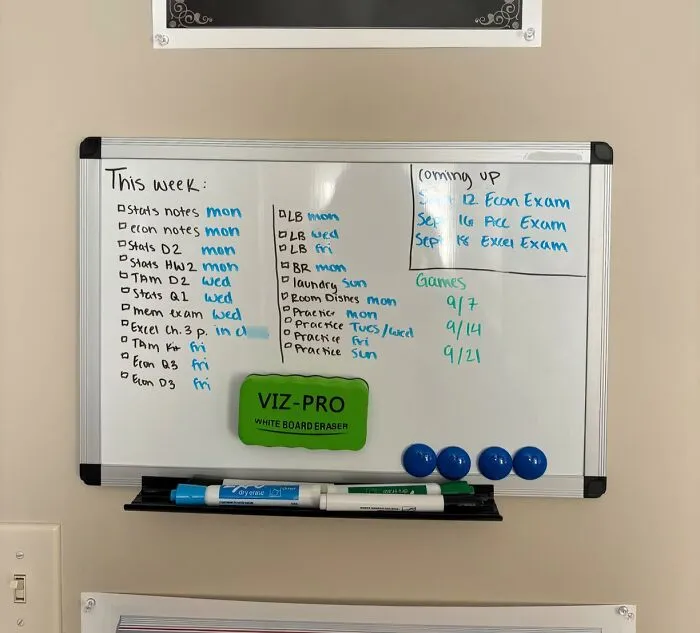 This week:
Stats notes mon
econ notes mon
Stats D2 mon
Stats HW2 mon
TAM D2 wed
Stats Q1 wed
mem exam wed
Excel Ch. 3 p. in
TAM fri
Econ Q3 fri
Econ D3 fri
LB mon
LB wed
LB fri
BR mon
laundry sun
Room Dishes mon
Practice mon
Practice Tues/wed
Practice fri
Practice Sun
Coming up
12 Econ Exam
Sept 16 Acc Exam
Sept 18 Excel Exam
Games
9/7
9/14
9/21
VIZ-PRO
WHITE BOARD ERASER
dry erase